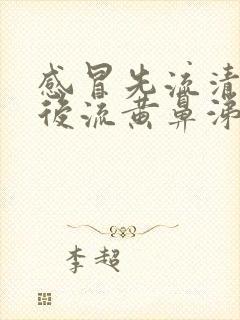 感冒先流清
后流黄鼻涕
李超